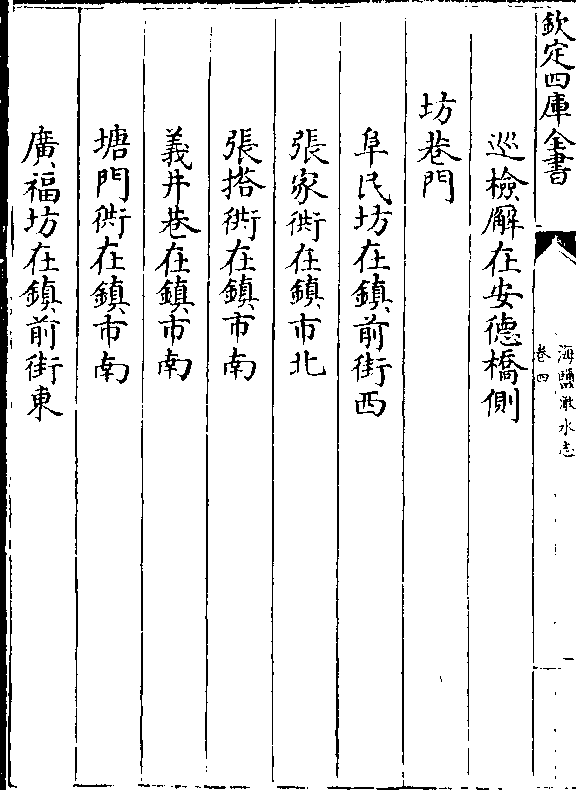 欽定四庫全書
海鹽澉水志
卷四
巡檢廨在安德橋側
坊巷門
阜民坊在鎮前街西
張家衖在鎮市北
張搭衖在鎮市南
義井巷在鎮市南
塘門衖在鎮市南
廣福坊在鎮前街東